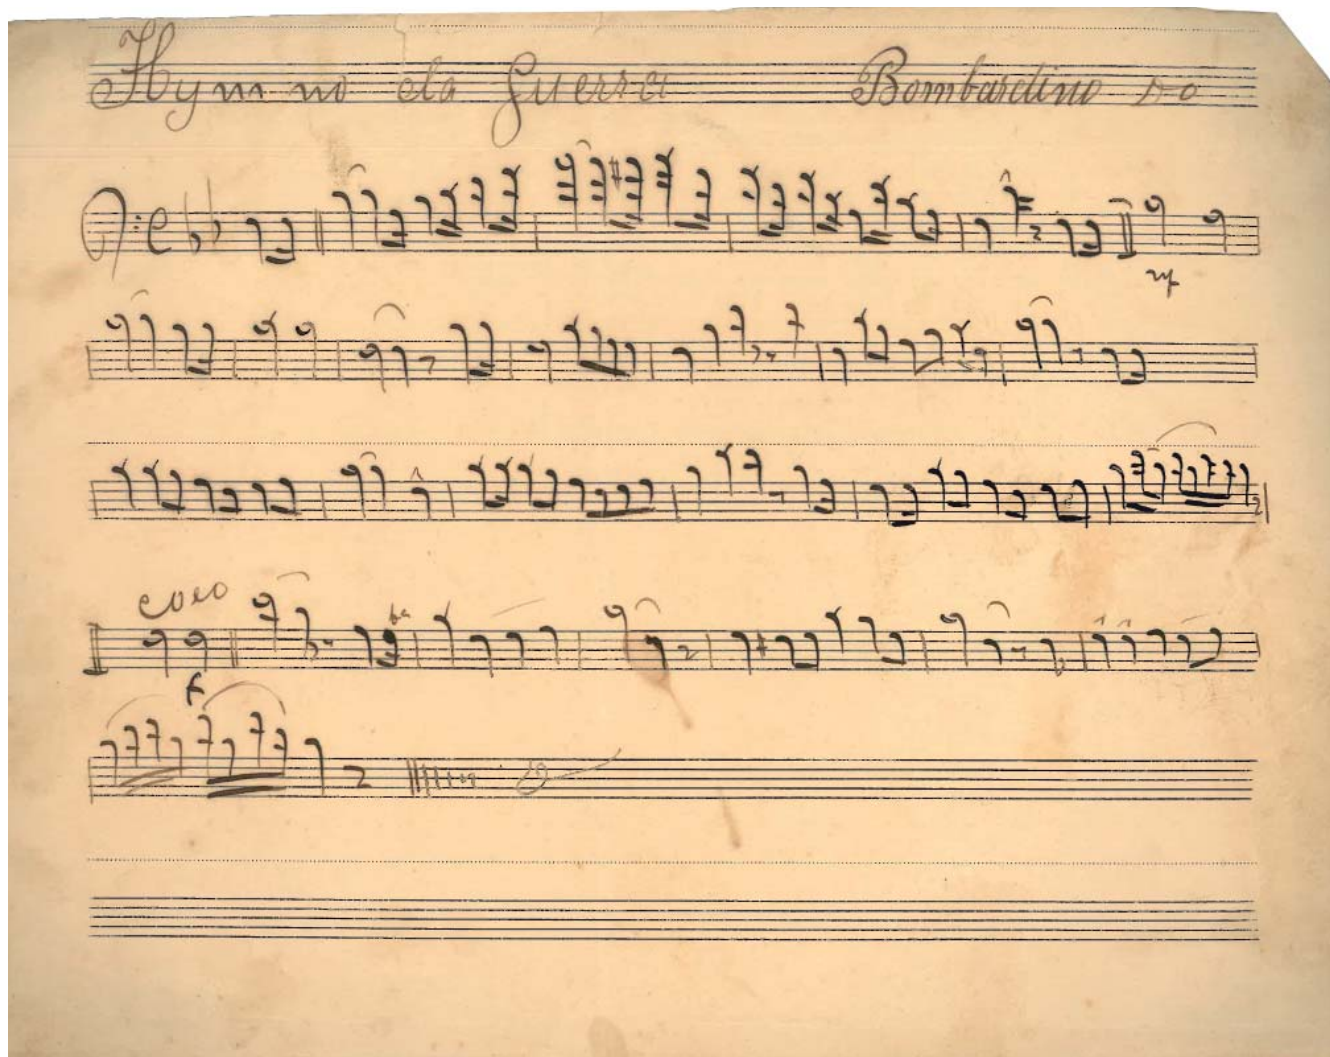 Hymno da Guerra Bombardino Do
mf
coro
f